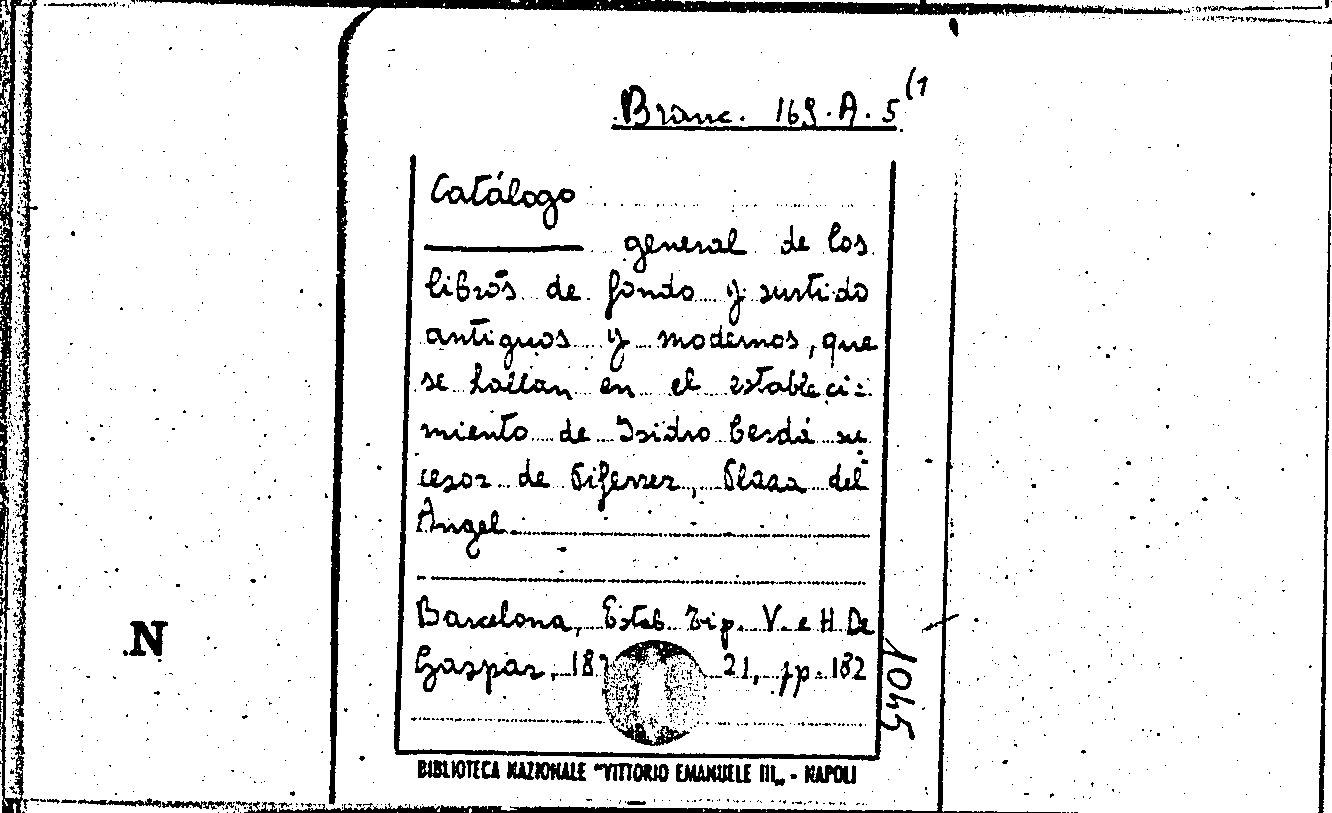 Branc. 169.A.5 (1
Catálogo
general de los
libros de fondo y surtido
antiguos y modernos, que
se hallan en el estableci-
miento de Isidro Cerdá su
cesor de Piferrer, Plaza del
Angel.
Barcelona, Estab. Tip. V. e H. De
Gaspar, 21, pp. 182
1045
N
BIBLIOTECA NAZIONALE "VITTORIO EMANUELE III„ - NAPOLI